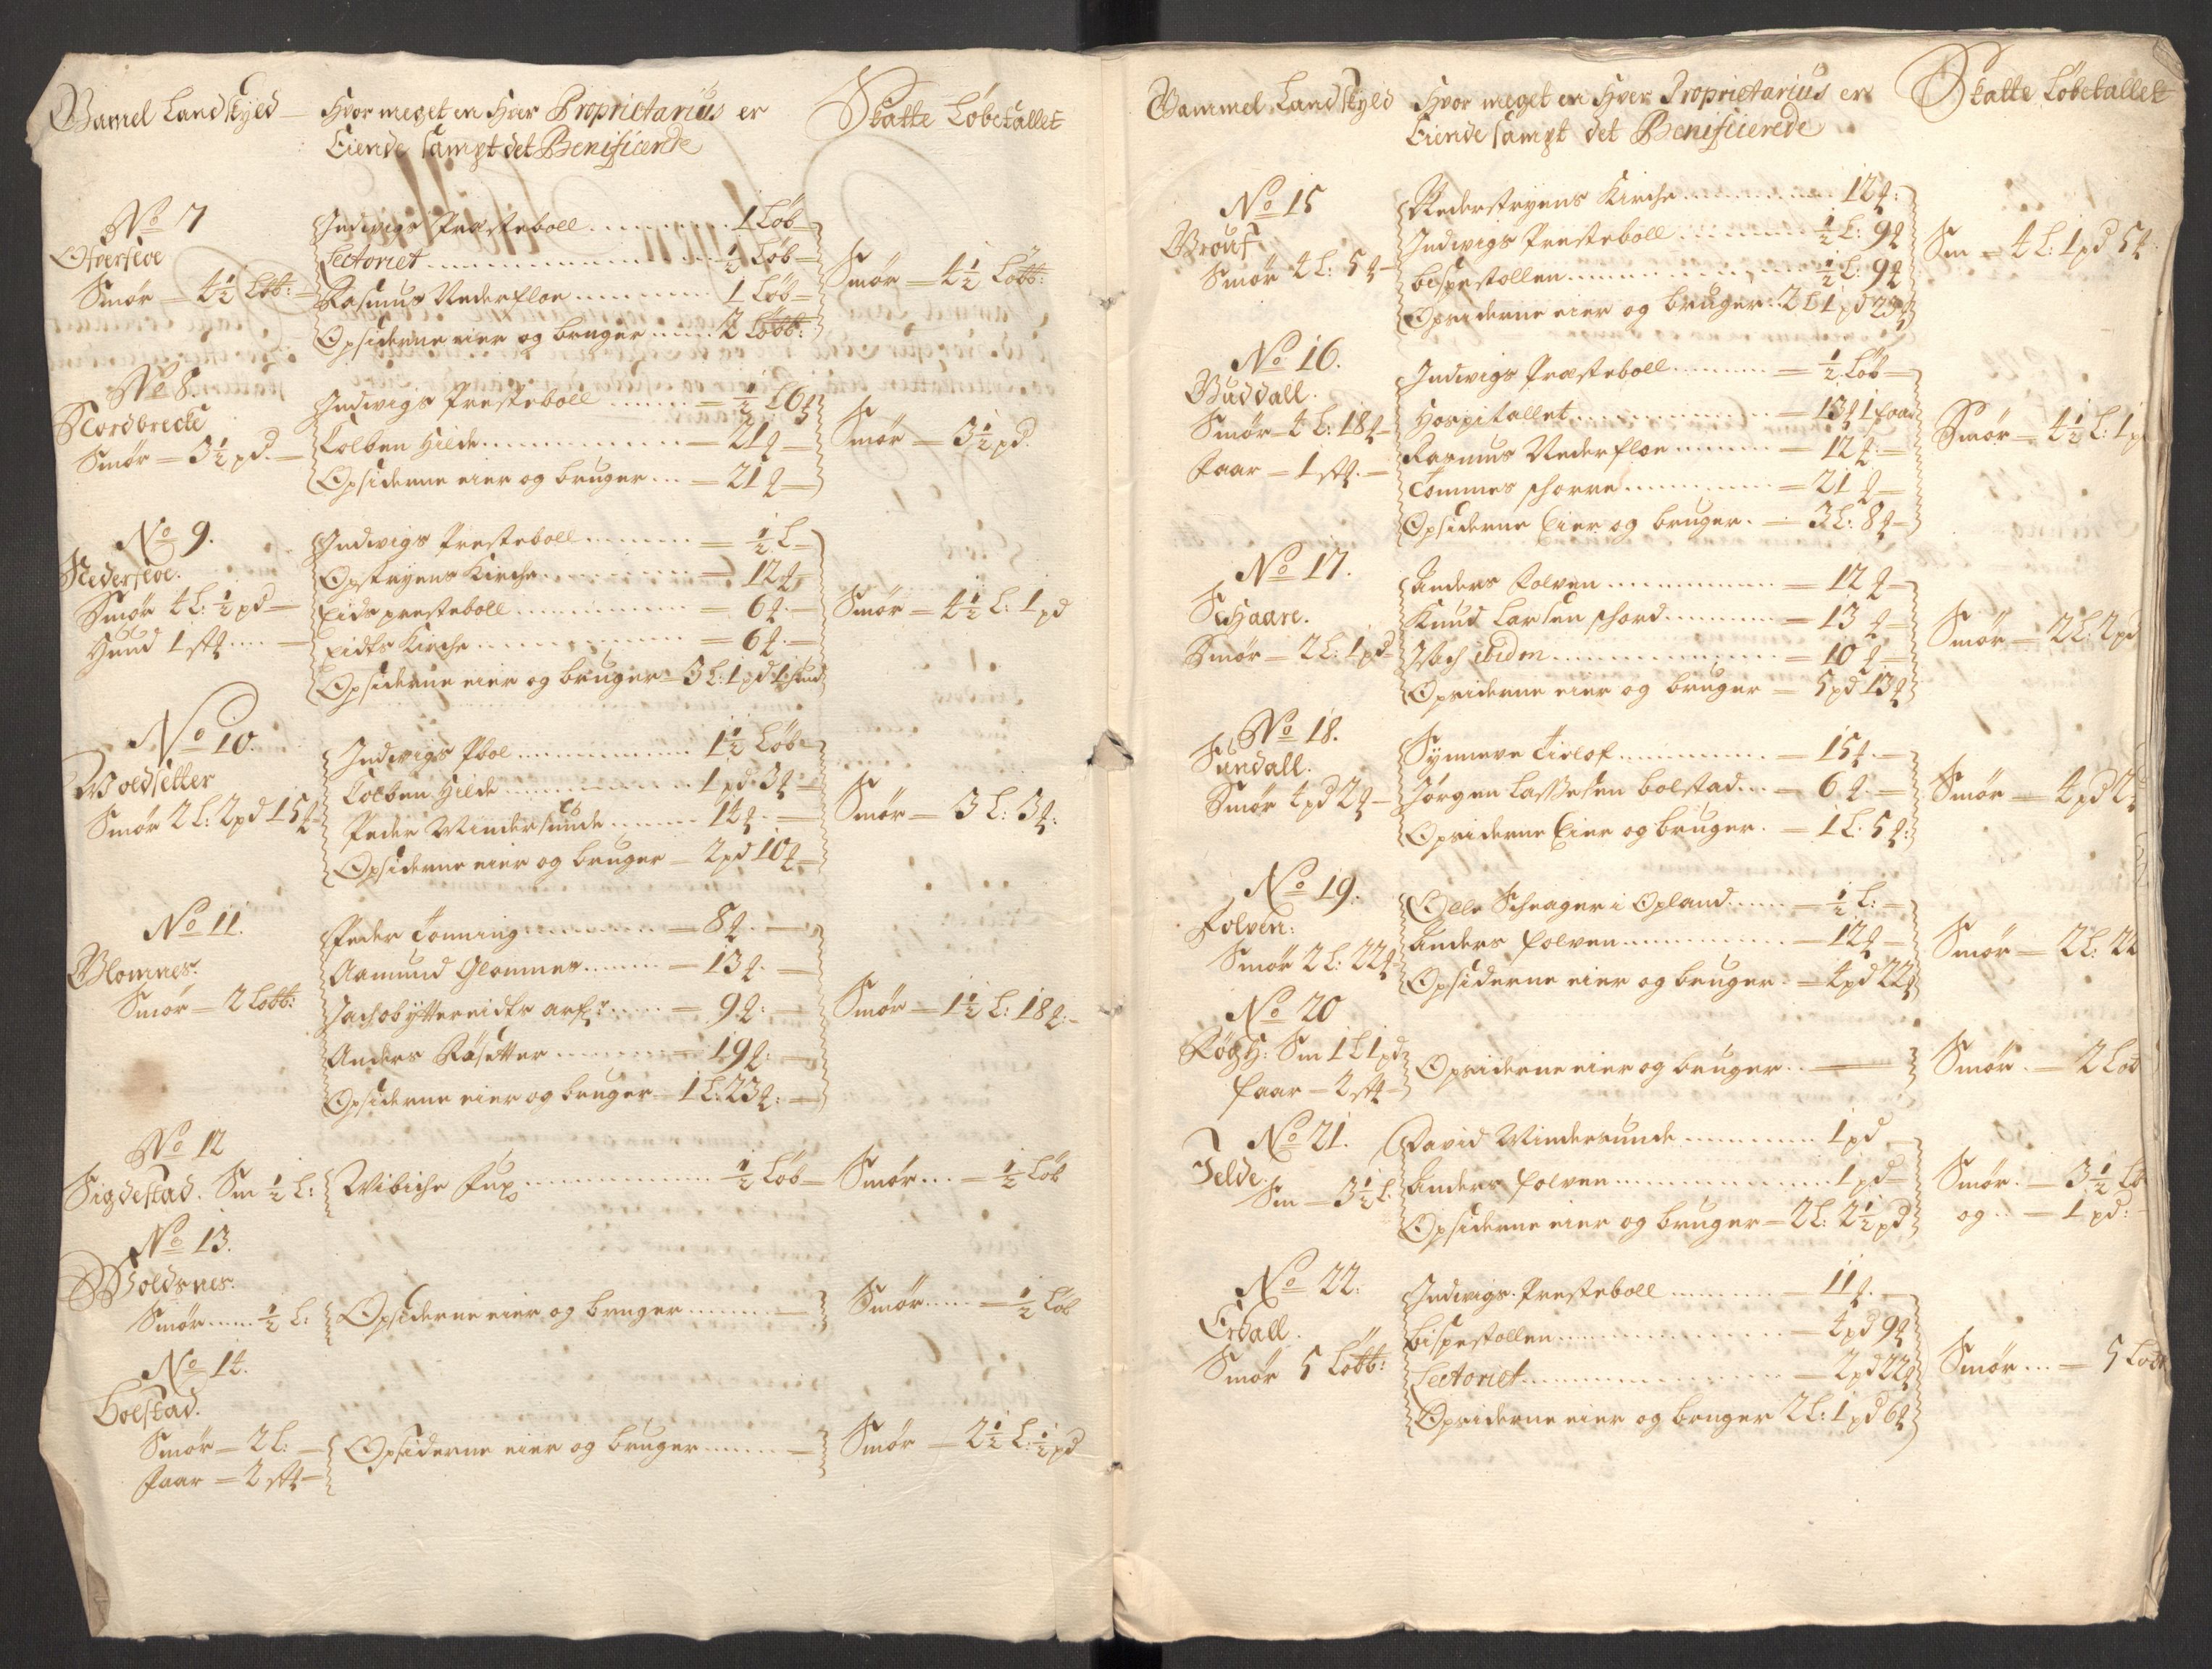 Gamel Landskyld
Hvor meget en Hver Proprietarius er
Eiende sampt det Benificerede
Skatte Løbetallet
No 7
Ofverseve
Smør - 4½ Løb:
Indvigs Præsteboll - 1 Løb
Lectoriet - ½ Løb
Rasmus Nederfloe - 1 Løb
Opsiderne eier og bruger - 2 Løbb:
Smør - 4½ Løbb:
No 8.
Nordbrecke
Smør - 3½ pd.
Indvigs Presteboll - ½ Løb
Tolben Hilde - 21 ꝶ
Opsiderne eier og bruger - 21 ꝶ
Smør - 3½ pd.
No 9.
Nederseve.
Smør 4 L: ½ pd
Huud 1 stꝶ
Indvigs Presteboll - ½ L
Opstryens Kirche - 12 ꝶ
Eids presteboll - 6 ꝶ
Eidts Kirche - 6 ꝶ
Opsiderne eier og bruger - 3 L: 1 pd 1 hud
Smør - 4½ L: 1 pd
No 10.
Woldsetter
Smør 2 L: 2 pd 15 ꝶ
Indvigs Pbol - 1½ Løb
Tolben Hilde - 1 pd 3 ꝶ
Peder Windersunde - 14 ꝶ
Opsiderne eier og bruger - 2 pd 10 ꝶ
Smør - 3 L: 3 ꝶ:
No 11.
Glomnes.
Smør - 2 Løbb:
Peder Tonning - 8 ꝶ
Aamund Glomnes - 13 ꝶ
Jachob Yttereidts arfr: - 9 ꝶ:
Anders Røsetter - 19 ꝶ:
Opsiderne eier og bruger - 1 L: 23 ꝶ:
Smør - 1½ L: 18 ꝶ
No 12
Sigdestad. Sm ½ L:
Wibiche Jup - ½ Løb
Smør - ½ Løb
No 13.
Woldsnes.
Smør ½ L:
Opsiderne eier og bruger
Smør - ½ Løb
No 14.
Bolstad.
Smør - 2 L:
Faar - 2 stꝶ
Opsiderne eier og bruger
Smør - 2½ L: ½ pd
Gammel Landskyld
Hvor meget en Hver Proprietarius er
Eiende sampt det Benificierede
Skatte Løbetallet
No 15
Grouf
Smør 4 L: 5 ꝶ
Nederstryens Kirche - 12 ꝶ:
Indvigs Presteboll - ½ L: 9 ꝶ
bispestollen - ½ L: 9 ꝶ
Opsiderne eier og bruger: 2 L 1 pd 23 ꝶ
Sm - 4 L: 1 pd 5 ꝶ
No 16.
Guddall.
Smør - 4 L: 18 ꝶ
Faar - 1 stꝶ.
Indvigs Præsteboll - ½ Løb
Hospitallet - 13 ꝶ 1 faar
Rasmus Nederfloe - 12 ꝶ
Tommes schorre - 21 ꝶ
Opsiderne Eier og bruger. - 3 L: 8 ꝶ
Smør - 4½ L: 1 p
No 17.
Schaare.
Smør - 2 L: 1 pd
Anders Folven - 12 ꝶ
Knud Larsen schord - 13 ꝶ
Isach ibidm - 10 ꝶ
Opsiderne eier og bruger - 5 pd 13 ꝶ
Smør - 2 L: 2 pd
No 18.
Sundall.
Smør 4 pd 2 ꝶ
Synneve Tislof - 15 ꝶ
Jørgen Lassesen bolstad - 6 ꝶ
Opsiderne Eier og bruger. - 1 L. 5 ꝶ:
Smør - 4 pd 2
No 19.
Folven:
Smør 2 L: 22 ꝶ
Olle Schrager i Opland - ½ L:
Anders Folven - 12 ꝶ
Opsiderne eier og bruger - 4 pd 22 ꝶ
Smør - 2 L: 22
No 20
Sm 1 L 1 pd
Faar - 2 stꝶ
Opsiderne eier og bruger
Smør. - 2 Løb
No 21.
Jelde.
Sm - 3½ L.
David Windersunde - 1 pd
Anders Folven - 1 pd
Opsiderne eier og bruger - 2 L: 2½ pd
Smør. - 3½ Lø
og - 1 pd:
No 22.
Erdall.
Smør 5 Løbb:
Indvigs Presteboll - 11 ꝶ
bispestollen - 4 pd 9 ꝶ
Lectoriet - 2 pd 22 ꝶ
Opsiderne eier og bruger 2 L: 1 pd 6 ꝶ
Smør - 5 Løb